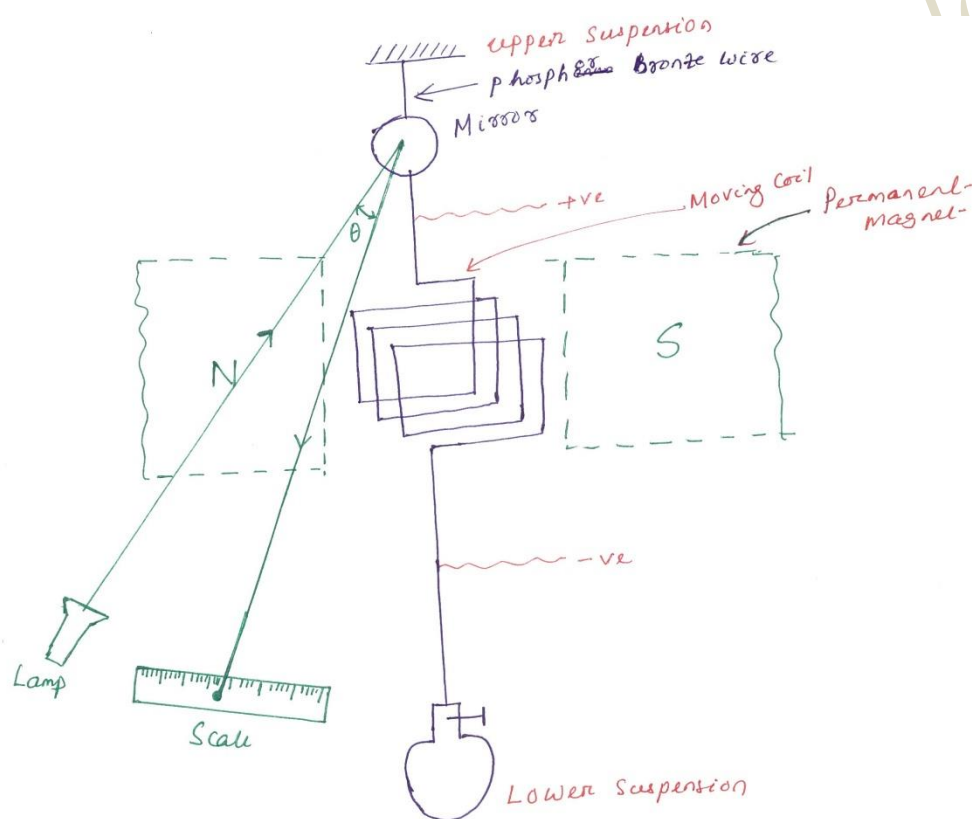 Upper Suspension
phosphor Bronze wire
Mirror
+ve
Moving Coil
Permanent-
Magnet-
θ
N
S
-ve
Lamp
Scale
Lower Suspension